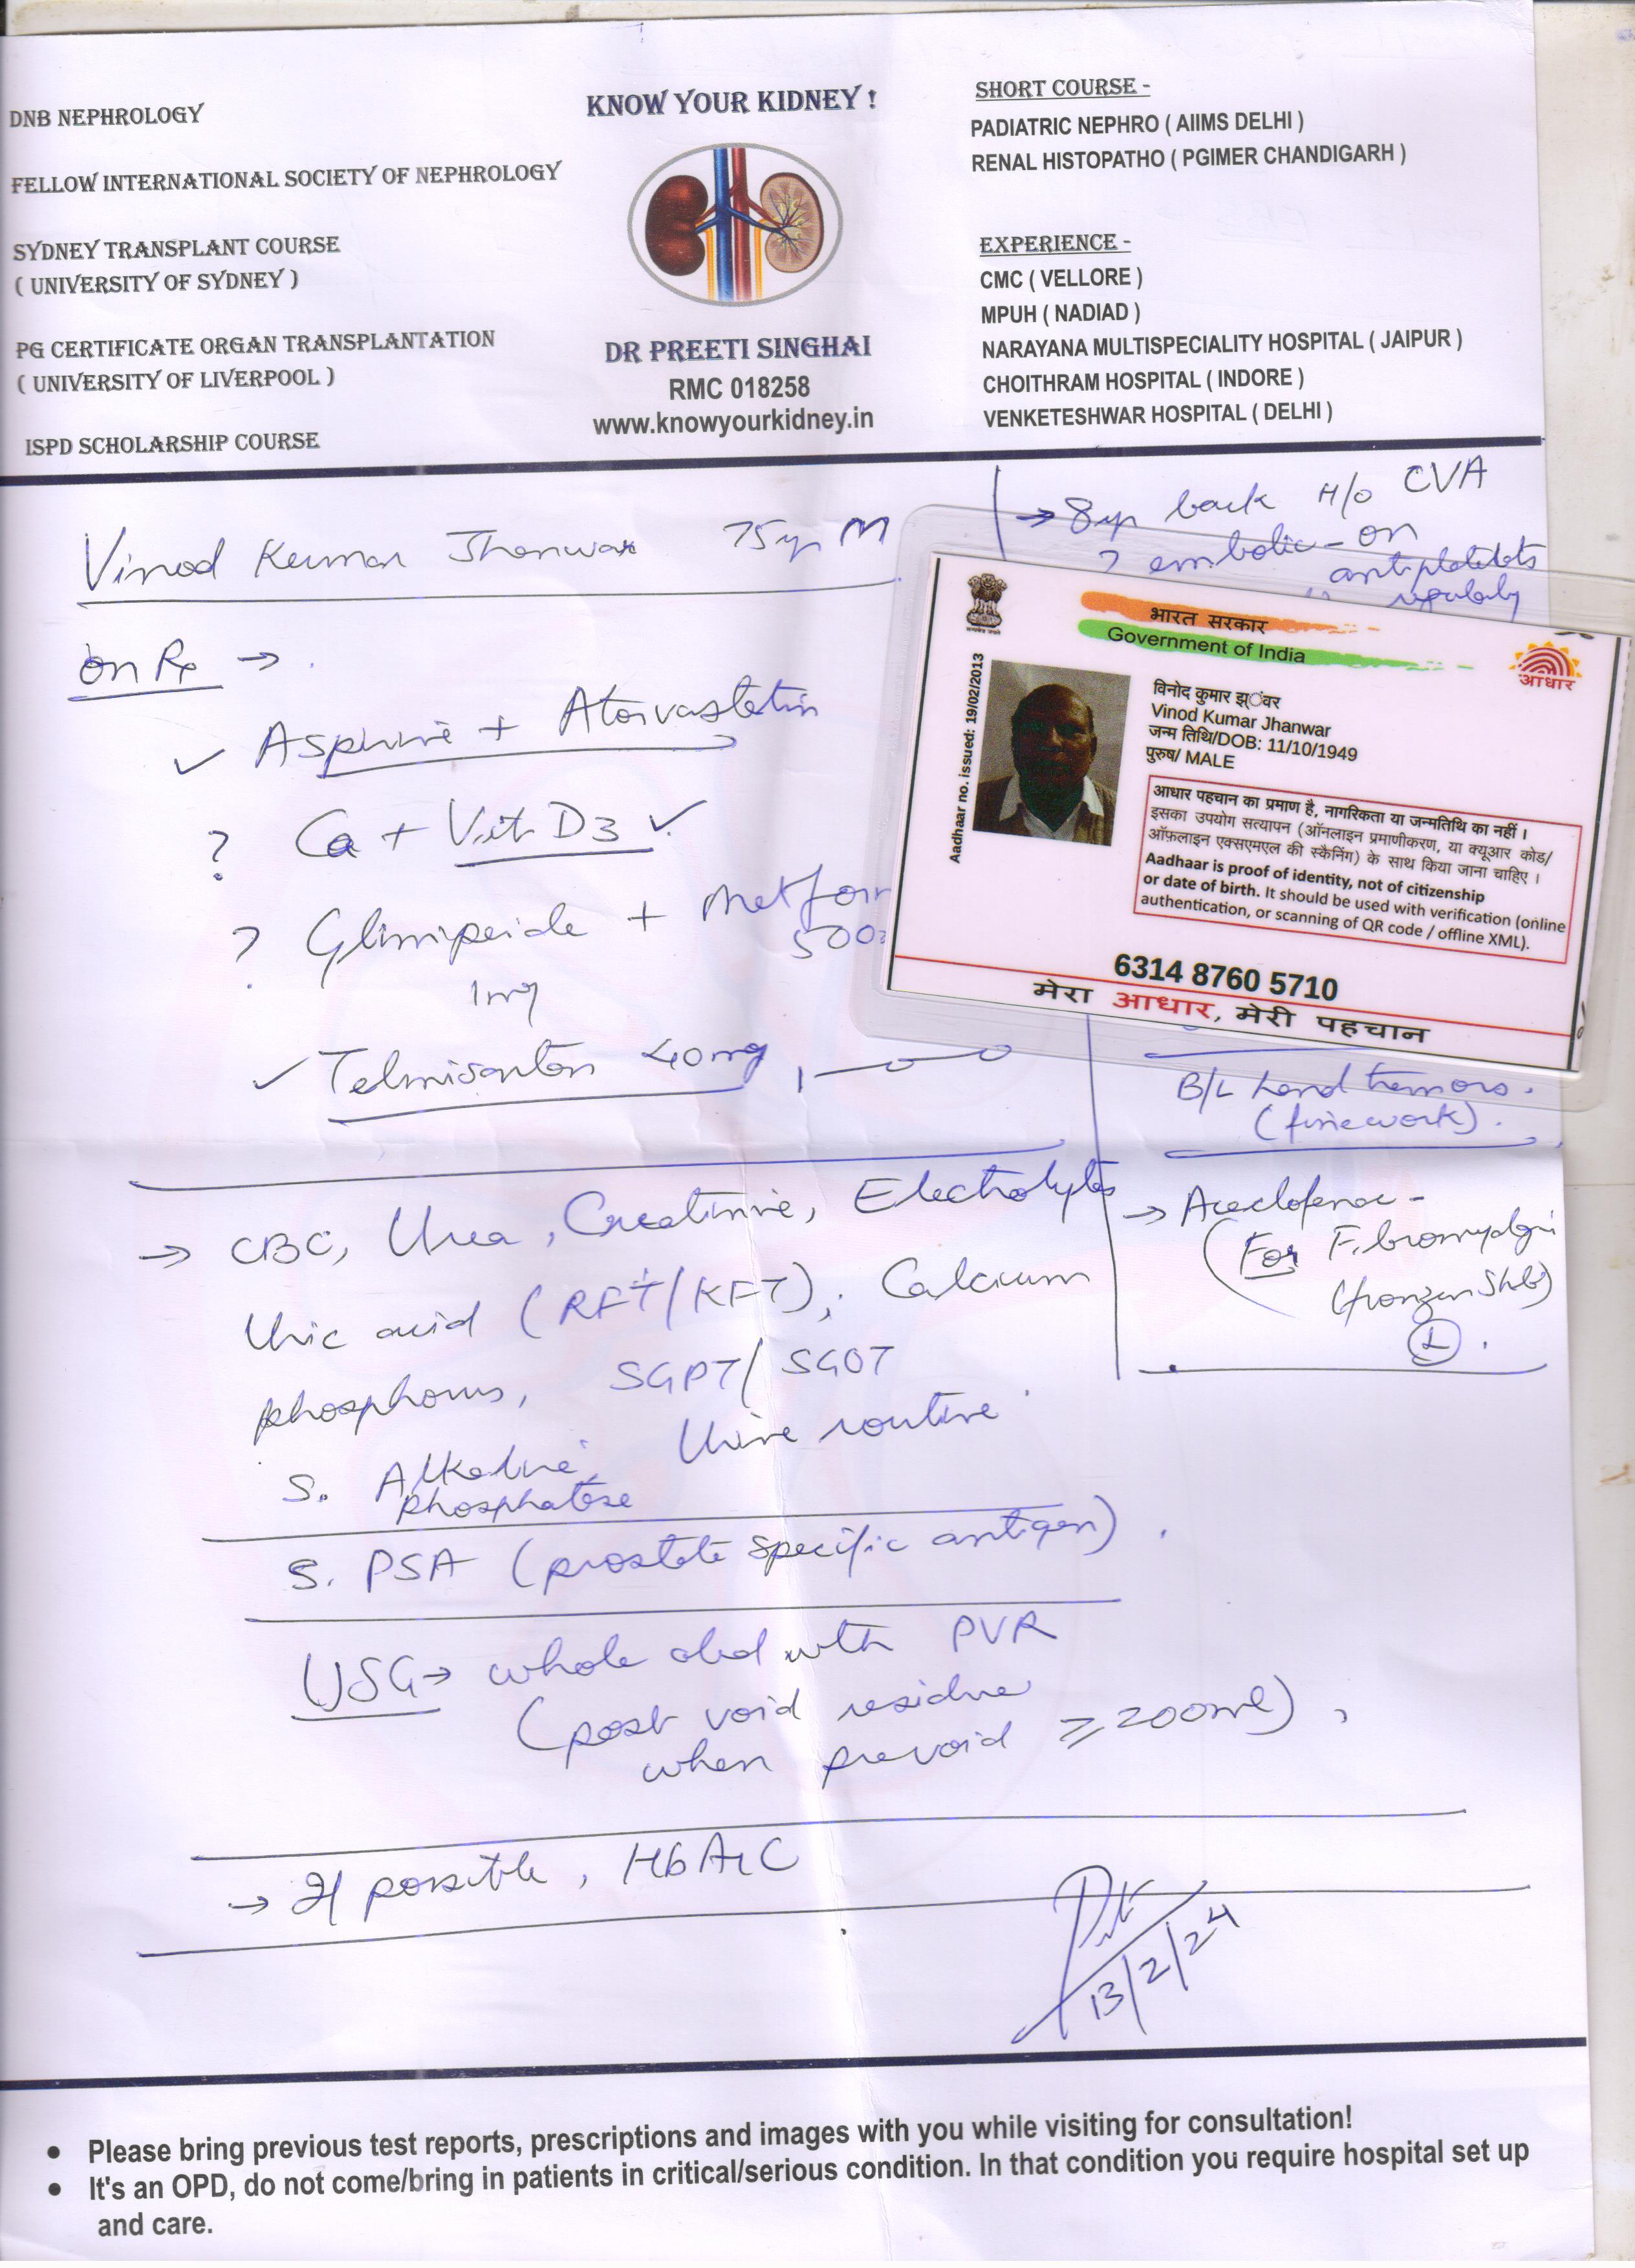 DNB NEPHROLOGY
FELLOW INTERNATIONAL SOCIETY OF NEPHROLOGY
SYDNEY TRANSPLANT COURSE
( UNIVERSITY OF SYDNEY )
PG CERTIFICATE ORGAN TRANSPLANTATION
( UNIVERSITY OF LIVERPOOL )
ISPD SCHOLARSHIP COURSE
KNOW YOUR KIDNEY !
DR PREETI SINGHAI
RMC 018258
www.knowyourkidney.in
SHORT COURSE -
PADIATRIC NEPHRO ( AIIMS DELHI )
RENAL HISTOPATHO ( PGIMER CHANDIGARH )
EXPERIENCE -
CMC ( VELLORE )
MPUH ( NADIAD )
NARAYANA MULTISPECIALITY HOSPITAL ( JAIPUR )
CHOITHRAM HOSPITAL ( INDORE )
VENKETESHWAR HOSPITAL ( DELHI )
Vinod Kumar Jhanwar 75yr M
→ 8yr back H/o CVA
? embolic - on
antiplatelets
regularly
on Rx →
✓ Asprine + Atorvastatin
? Ca + Vit D3 ✓
? Glimiperide + Metfor
1mg 500
✓ Telmisartan 40mg
भारत सरकार
Government of India
आधार
Aadhaar no. issued: 19/02/2013
विनोद कुमार झंवर
Vinod Kumar Jhanwar
जन्म तिथि/DOB: 11/10/1949
पुरुष/ MALE
आधार पहचान का प्रमाण है, नागरिकता या जन्मतिथि का नहीं ।
इसका उपयोग सत्यापन (ऑनलाइन प्रमाणीकरण, या क्यूआर कोड/
ऑफ़लाइन एक्सएमएल की स्कैनिंग) के साथ किया जाना चाहिए ।
Aadhaar is proof of identity, not of citizenship
or date of birth. It should be used with verification (online
authentication, or scanning of QR code / offline XML).
6314 8760 5710
मेरा आधार, मेरी पहचान
B/L hand tremors.
(finework).
→ Aceclofenac -
(For Fibromyalgi
(frozen Shld)
(L).
→ CBC, Urea, Creatinine, Electrolytes
Uric acid (RFT/KFT), Calcium
phosphorus, SGPT/SGOT
S. Alkaline Urine routine
phosphatase
S. PSA (prostate specific antigen).
USG → whole abd with PVR
(post void residue
when prevoid ≥ 200ml),
→ If possible, HbA1C
13/2/24
• Please bring previous test reports, prescriptions and images with you while visiting for consultation!
• It's an OPD, do not come/bring in patients in critical/serious condition. In that condition you require hospital set up
and care.